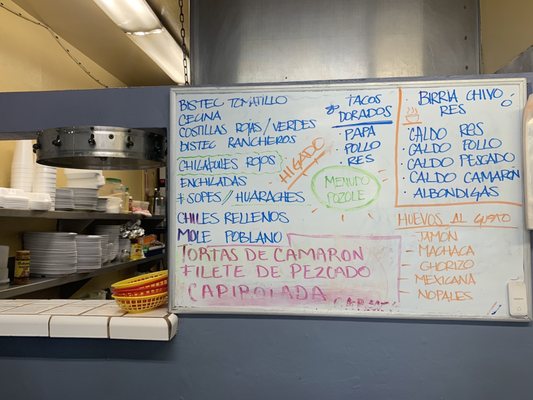 BISTEC TOMATILLO
CECINA
COSTILLAS ROJAS/VERDES
BISTEC RANCHEROS
CHILAQUILES ROJOS
ENCHILADAS
* SOPES/HUARACHES
CHILES RELLENOS
MOLE POBLANO
TORTAS DE CAMARON
FILETE DE PEZCADO
CAPIROLADA
HIGADO
TACOS
DORADOS
· PAPA
· POLLO
· RES
MENUDO
POZOLE
BIRRIA CHIVO
RES
· CALDO RES
· CALDO POLLO
· CALDO PESCADO
· CALDO CAMARON
· ALBONDIGAS
HUEVOS AL GUSTO
JAMÓN
MACHACA
CHORIZO
MEXICANA
NOPALES